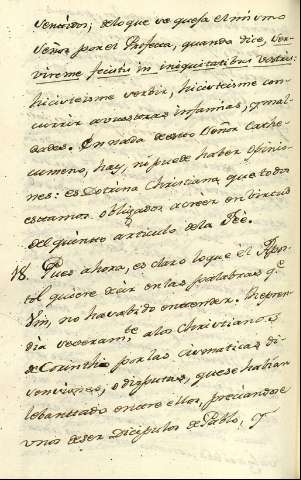 vencidos; de lo que se quexa el mismo
Señor por el Profeta, quando dice, Ser-
vire me fecistis in iniquitatibus vestris:
hicisteisme servir, hicisteisme con-
currir a vuestras infamias, y mal-
dades. En nada de esto Señor Cathe-
cumeno, hay, ni puede haber opinio-
nes: es Dotrina Christiana, que todos
estamos obligados a creer en virtud
del quinto articulo de la Fèe.
18. Pues ahora, es claro lo que el Apos-
tol quiere decir en las palabras qᵉ
Vm, no ha sabido entender. Repren-
dia severamᵗᵉ a los Christianos
de Corintho por las cismaticas di-
venciones, o disputas, que se habian
lebantado entre ellos, preciandose
unos de ser Dicipulos de Pablo, y